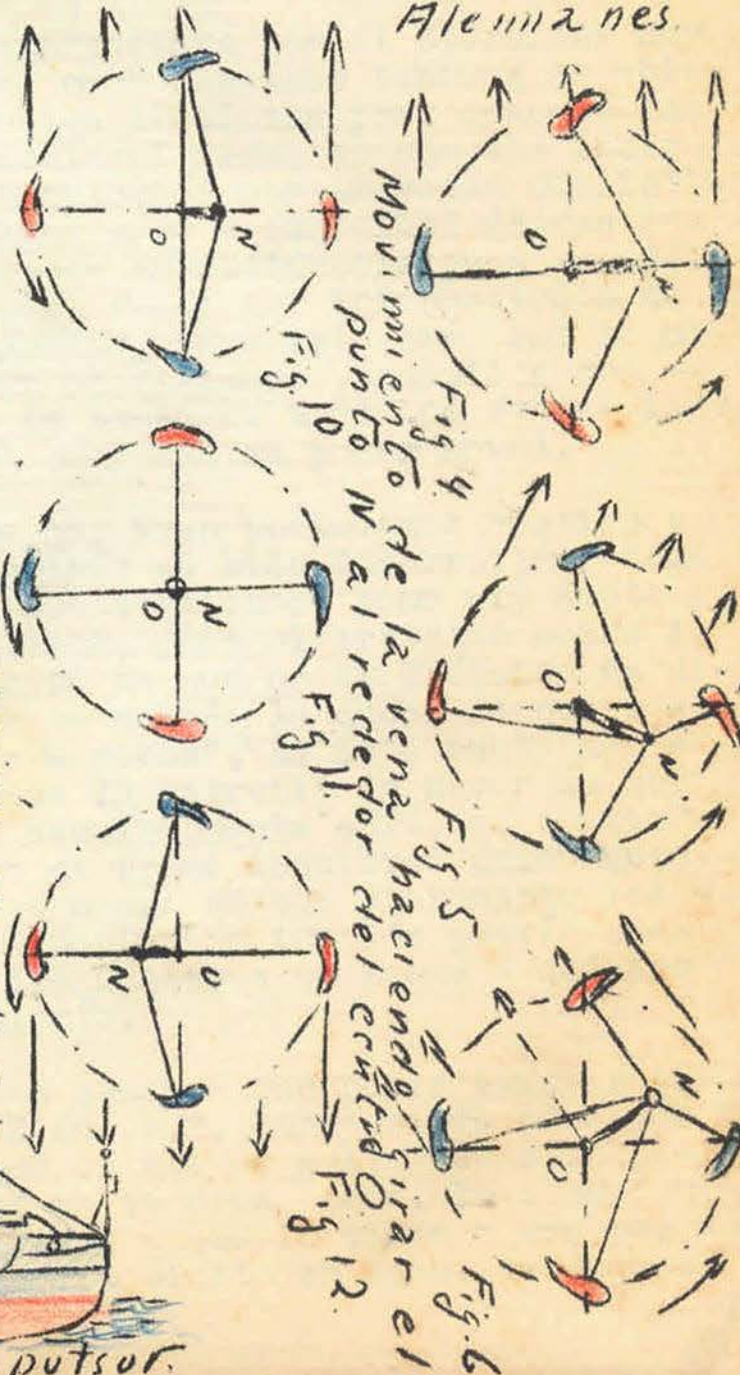 Alemanes.
O
N
Fig 4.
O
N
Fig 5
O
N
Fig. 6
Movimiento de la vena haciendo girar el
punto N alrededor del centro O
O
N
Fig. 10
O
N
Fig 11.
N
O
Fig 12.